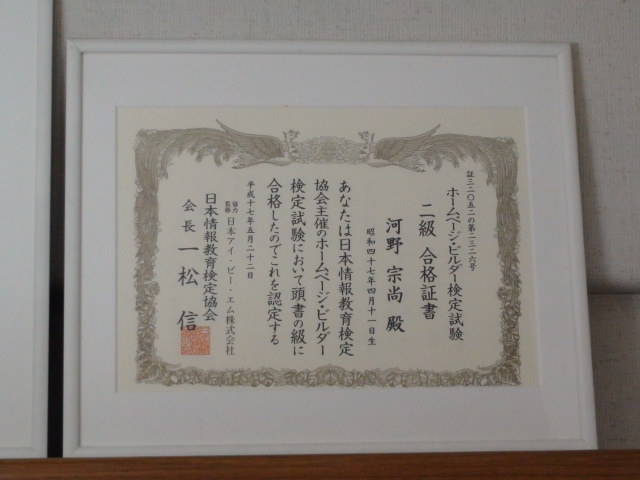 証三二〇五二の第二三二六号
ホームページ・ビルダー検定試験
二級 合格証書
河野 宗尚 殿
昭和四十七年四月十一日生
あなたは日本情報教育検定
協会主催のホームページ・ビルダー
検定試験において頭書の級に
合格したのでこれを認定する
平成十七年五月二十二日
協力
監修 日本アイ・ビー・エム株式会社
日本情報教育検定協会
会長 一松 信